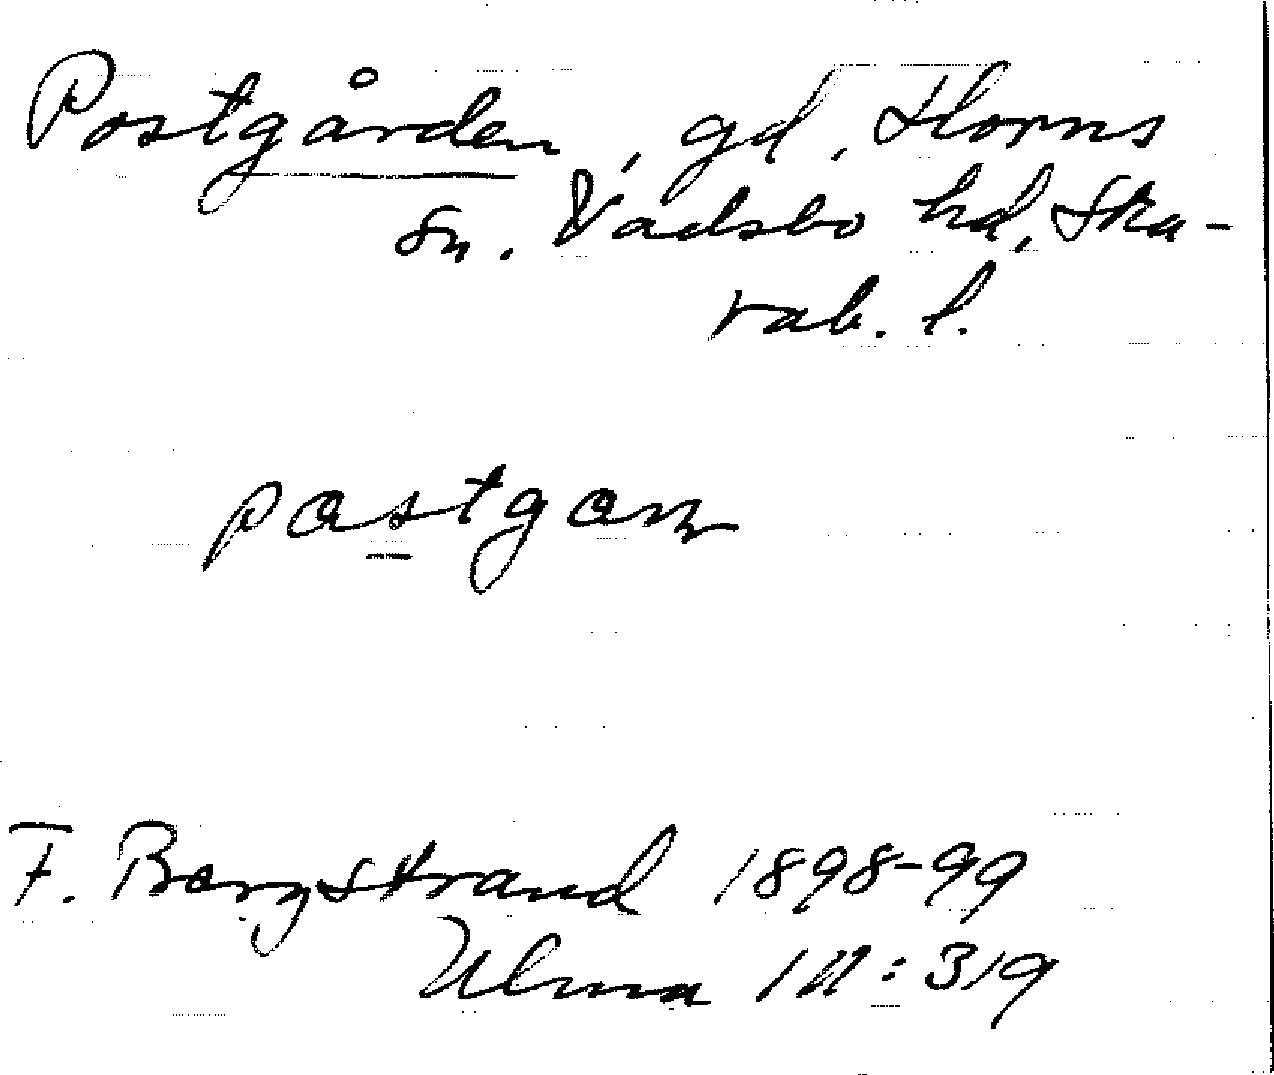 Postgården, gd, Horns
sn. Vadsbo hd, Ska-
rab. l.
postgon
F. Bergstrand 1898-99
Ulma 111:319